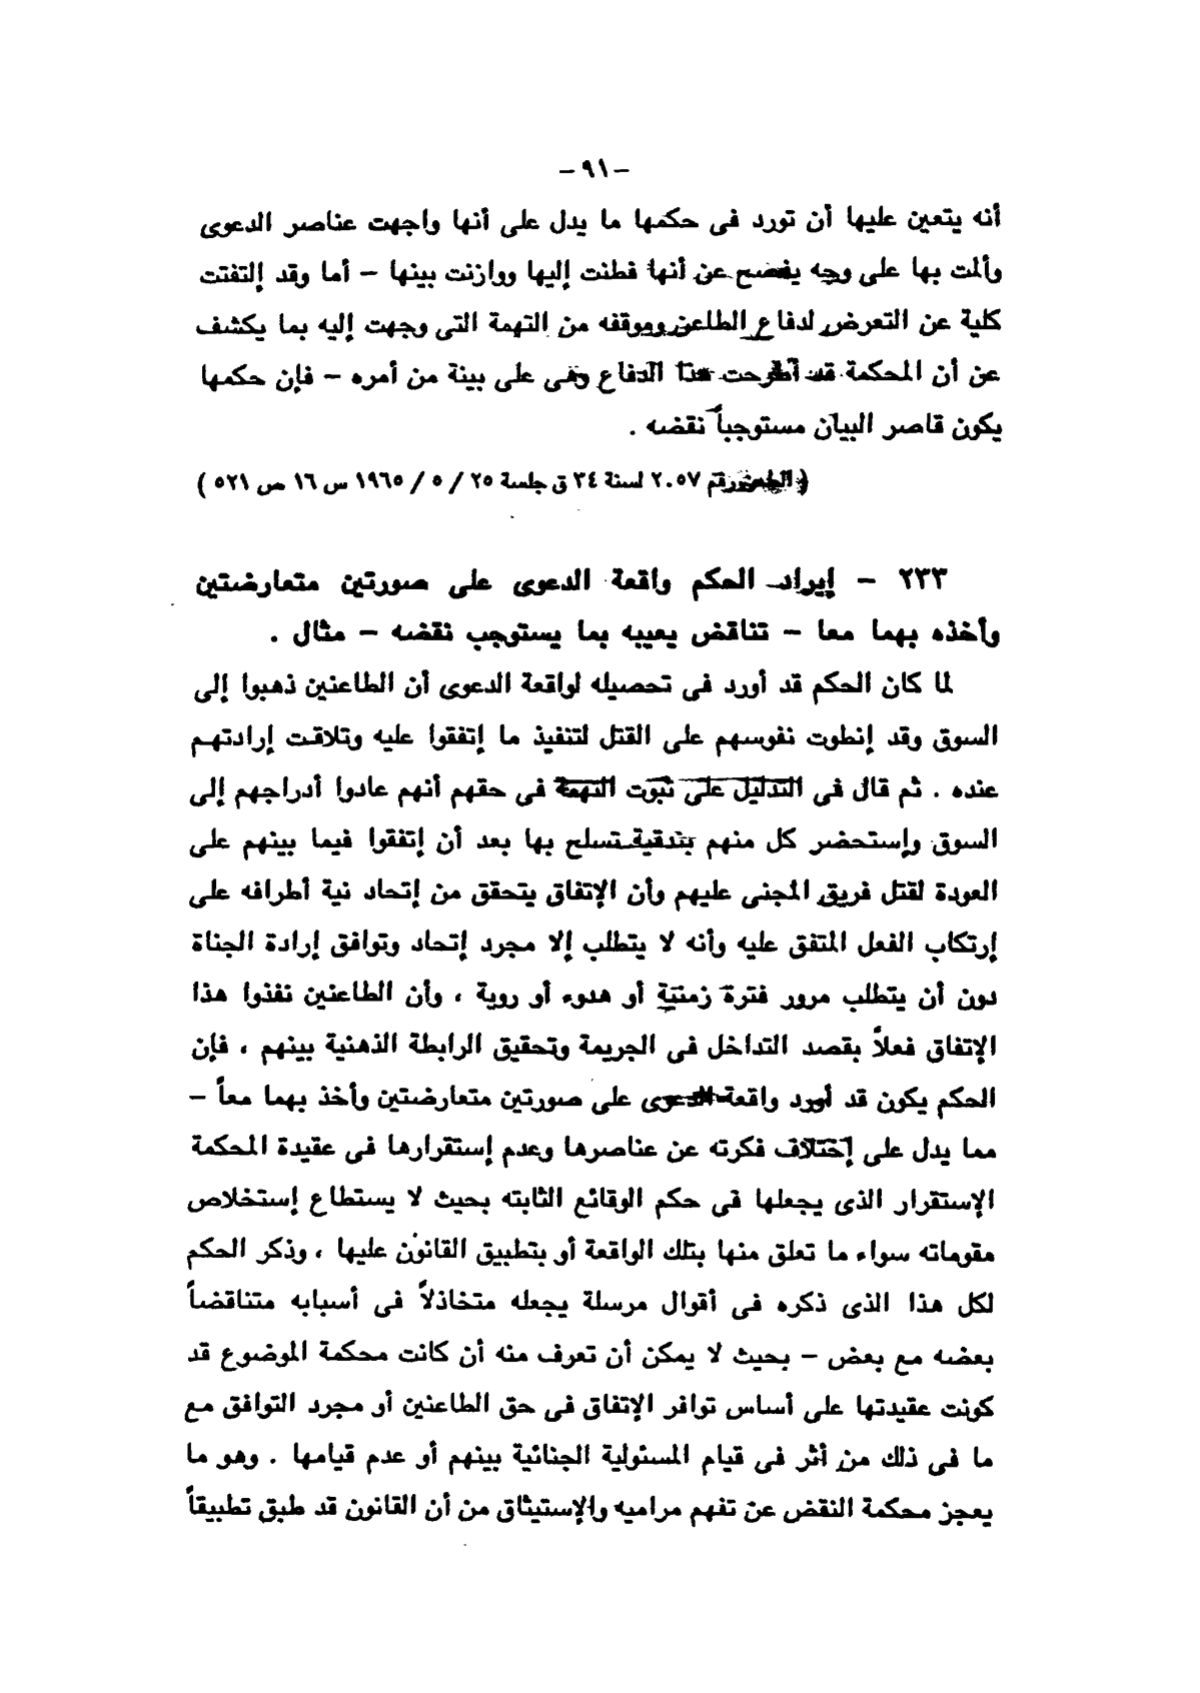 -٩١-
أنه يتعين عليها أن تورد فى حكمها ما يدل على أنها واجهت عناصر الدعوى
وألمت بها على وجه يفصح عن أنها فطنت إليها ووازنت بينها - أما وقد إلتفتت
كلية عن التعرض لدفاع الطاعن وموقفه من التهمة التى وجهت إليه بما يكشف
عن أن المحكمة قد أطرحت هذا الدفاع وهى على بينة من أمره - فإن حكمها
يكون قاصر البيان مستوجباً نقضه .
( الطعن رقم ٢٠٥٧ لسنة ٣٤ ق جلسة ٢٥ / ٥ / ١٩٦٥ س ١٦ ص ٥٢١ )
٢٣٣ - إيراد الحكم واقعة الدعوى على صورتين متعارضتين
وأخذه بهما معا - تناقض يعيبه بما يستوجب نقضه - مثال .
لما كان الحكم قد أورد فى تحصيله لواقعة الدعوى أن الطاعنين ذهبوا إلى
السوق وقد إنطوت نفوسهم على القتل لتنفيذ ما إتفقوا عليه وتلاقت إرادتهم
عنده . ثم قال فى التدليل على ثبوت التهمة فى حقهم أنهم عادوا أدراجهم إلى
السوق وإستحضر كل منهم بندقية تسلح بها بعد أن إتفقوا فيما بينهم على
العودة لقتل فريق المجنى عليهم وأن الإتفاق يتحقق من إتحاد نية أطرافه على
إرتكاب الفعل المتفق عليه وأنه لا يتطلب إلا مجرد إتحاد وتوافق إرادة الجناة
دون أن يتطلب مرور فترة زمنية أو هدوء أو روية ، وأن الطاعنين نفذوا هذا
الإتفاق فعلاً بقصد التداخل فى الجريمة وتحقيق الرابطة الذهنية بينهم ، فإن
الحكم يكون قد أورد واقعة الدعوى على صورتين متعارضتين وأخذ بهما معاً -
مما يدل على إختلاف فكرته عن عناصرها وعدم إستقرارها فى عقيدة المحكمة
الإستقرار الذى يجعلها فى حكم الوقائع الثابته بحيث لا يستطاع إستخلاص
مقوماته سواء ما تعلق منها بتلك الواقعة أو بتطبيق القانون عليها ، وذكر الحكم
لكل هذا الذى ذكره فى أقوال مرسلة يجعله متخاذلاً فى أسبابه متناقضاً
بعضه مع بعض - بحيث لا يمكن أن تعرف منه أن كانت محكمة الموضوع قد
كونت عقيدتها على أساس توافر الإتفاق فى حق الطاعنين أو مجرد التوافق مع
ما فى ذلك من أثر فى قيام المسئولية الجنائية بينهم أو عدم قيامها . وهو ما
يعجز محكمة النقض عن تفهم مراميه والإستيثاق من أن القانون قد طبق تطبيقاً